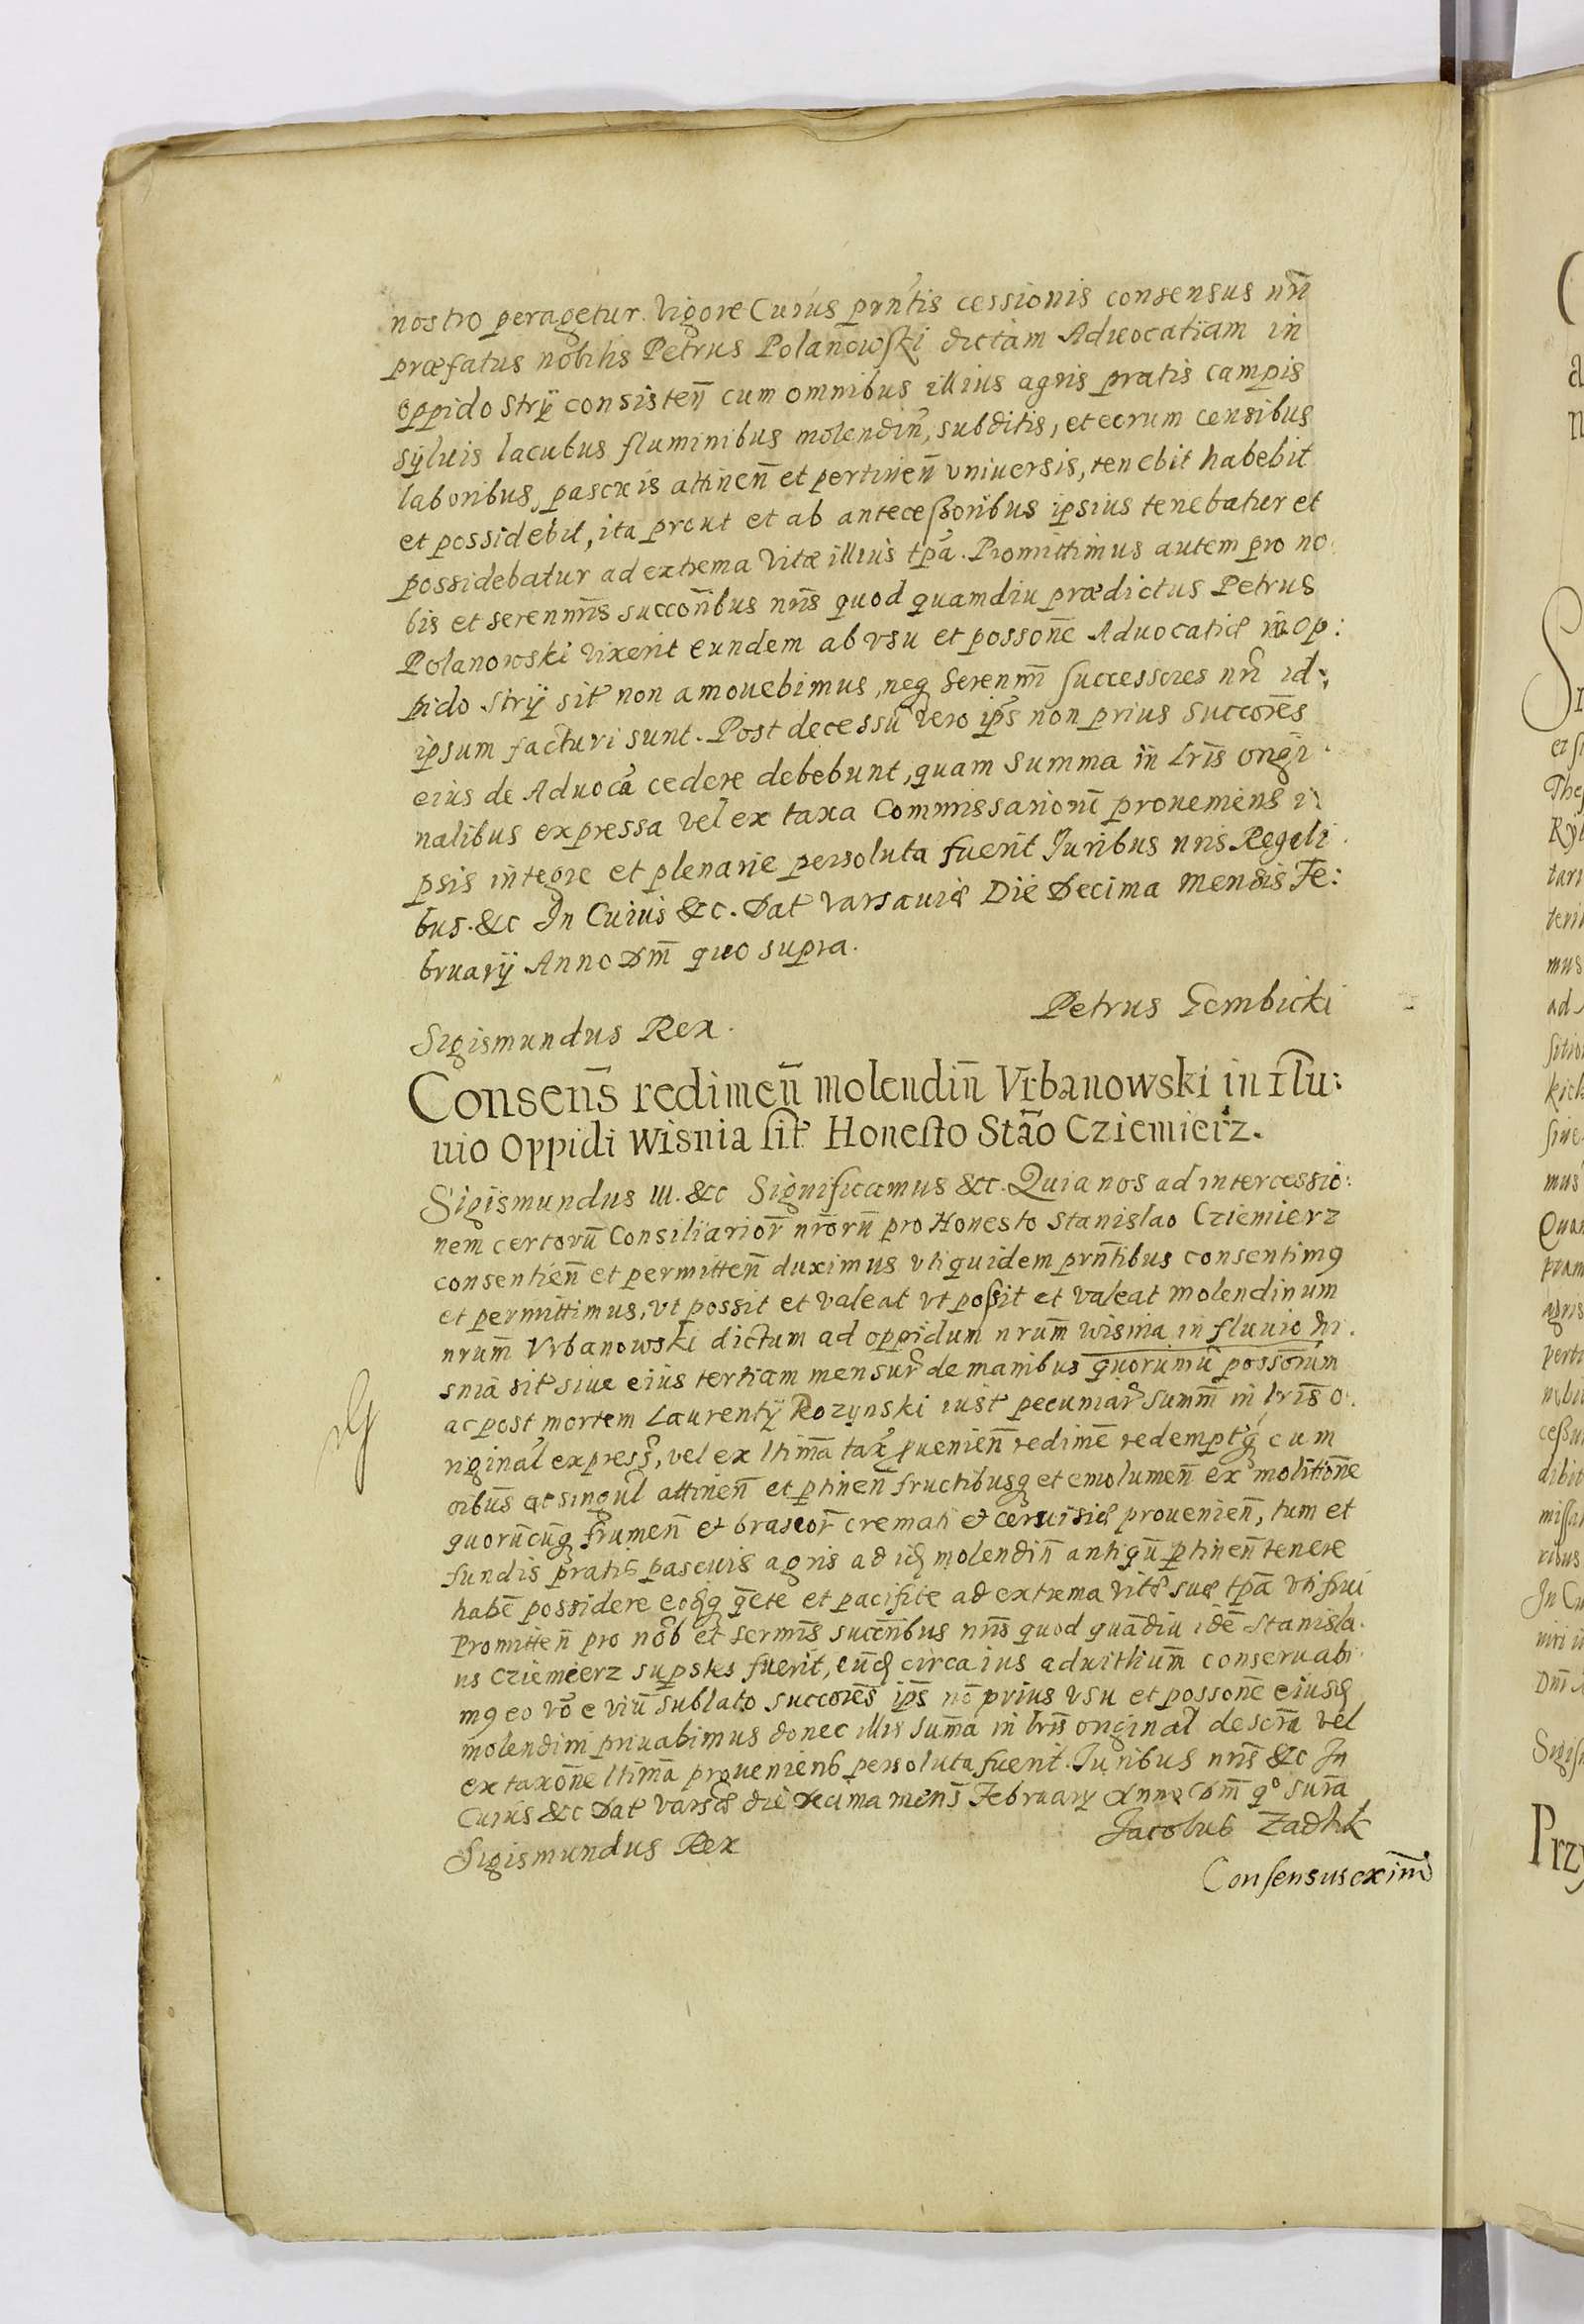 nostro peragetur. Vigore Cuius prñtis cessionis consensus nr̃i
præfatus nobilis Petrus Polanowski dictam Aduocatiam in
oppido Stryi consisteñ cum omnibus illius agris pratis campis
syluis lacubus fluminibus molendiñ, subditis, et eorum censibus
laboribus, pascuis attineñ et pertineñ vniuersis, tenebit habebit
et possidebit, ita prout et ab antecessoribus ipsius tenebatur et
possidebatur ad extrema vitæ illius tp̃a. Promittimus autem pro no
bis et serenmis̃ succoribus nr̃is quod quamdiu prædictus Petrus
Polanowski vixerit eundem ab vsu et possone Aduocatiæ in op:
pido Stryi sit̃ non amouebimus, neq3 Serenmi successores nr̃i id:
ipsum facturi sunt. Post decessũ vero ip̃s non prius succores
eius de Aduoca cedere debebunt, quam summa in Lr̃is origi
nalibus expressa vel ex taxa Commissariom̃ proueniens i
psis integre et plenarie persoluta fuerit Juribus nris Regali
bus. &c In Cuius &c. Dat̃ Varsauiæ Die Decima Mensis Fe:
bruarij Anno Dm̃ quo supra.
Petrus Gembicki
Sigismundus Rex.
Conseñs redimeñ molendiñ Vrbanowski in flu:
uio Oppidi Wisnia sit̃ Honesto Stão Cziemierz.
Sigismundus III. &c Significamus &c. Quia nos ad intercessio:
nem certorũ Consiliarior̃ nr̃orũ pro Honesto Stanislao Cziemierz
consentieñ et permitteñ duximus vti quidem prñtibus consentim9
et permittimus, vt possit et valeat vt possit et valeat molendinum
nrum̃ Vrbanowski dictum ad oppidum nrum̃ Wisnia in fluuio Wi.
snia sit̃ siue eius tertiam mensur̃ de manibus quorumũ possorum̃
ac post mortem Laurentij Rozynski iust̃ pecuniar̃ summ̃ in lr̃is o.
riginal̃ express̃, vel ex ltima tax̃ ꝓuenieñ redimẽ redemptq3 cum
oibus̃ et singul̃ attineñ et ptineñ fructibusq3 et emolumeñ ex molitiõne
quorũcũq3 frumeñ et braseor̃ cremati et ceruisiæ prouenieñ, tum et
fundis pratis pascuis agris ad id molendiñ antiqũ ptineñ tenere
habẽ possidere eoq3 q̃ete et pacifice ad extrema vitæ suæ tp̃a vti frui
Promitteñ pro nob̃ et sermis̃ succribus̃ nr̃is quod quãdiu idẽ Stanisla.
us Cziemierz supstes fuerit, eũd circa ius aduitlium̃ conseruabi.
m9 eo võ e viũ sublato succores̃ ip̃s nõ prius vsu et possone eiusd
molendini priuabimus donec illis suma in lr̃is original̃ descra vel
ex taxõne ltima proueniens persoluta fuerit. Juribus nr̃is &c In
Cuius &c Dat̃ Varsæ̃ die Decima mens̃ February Anno Dm̃ qº sura
Jacobus Zadzik
Sigismundus Rex
Consensus exim̃